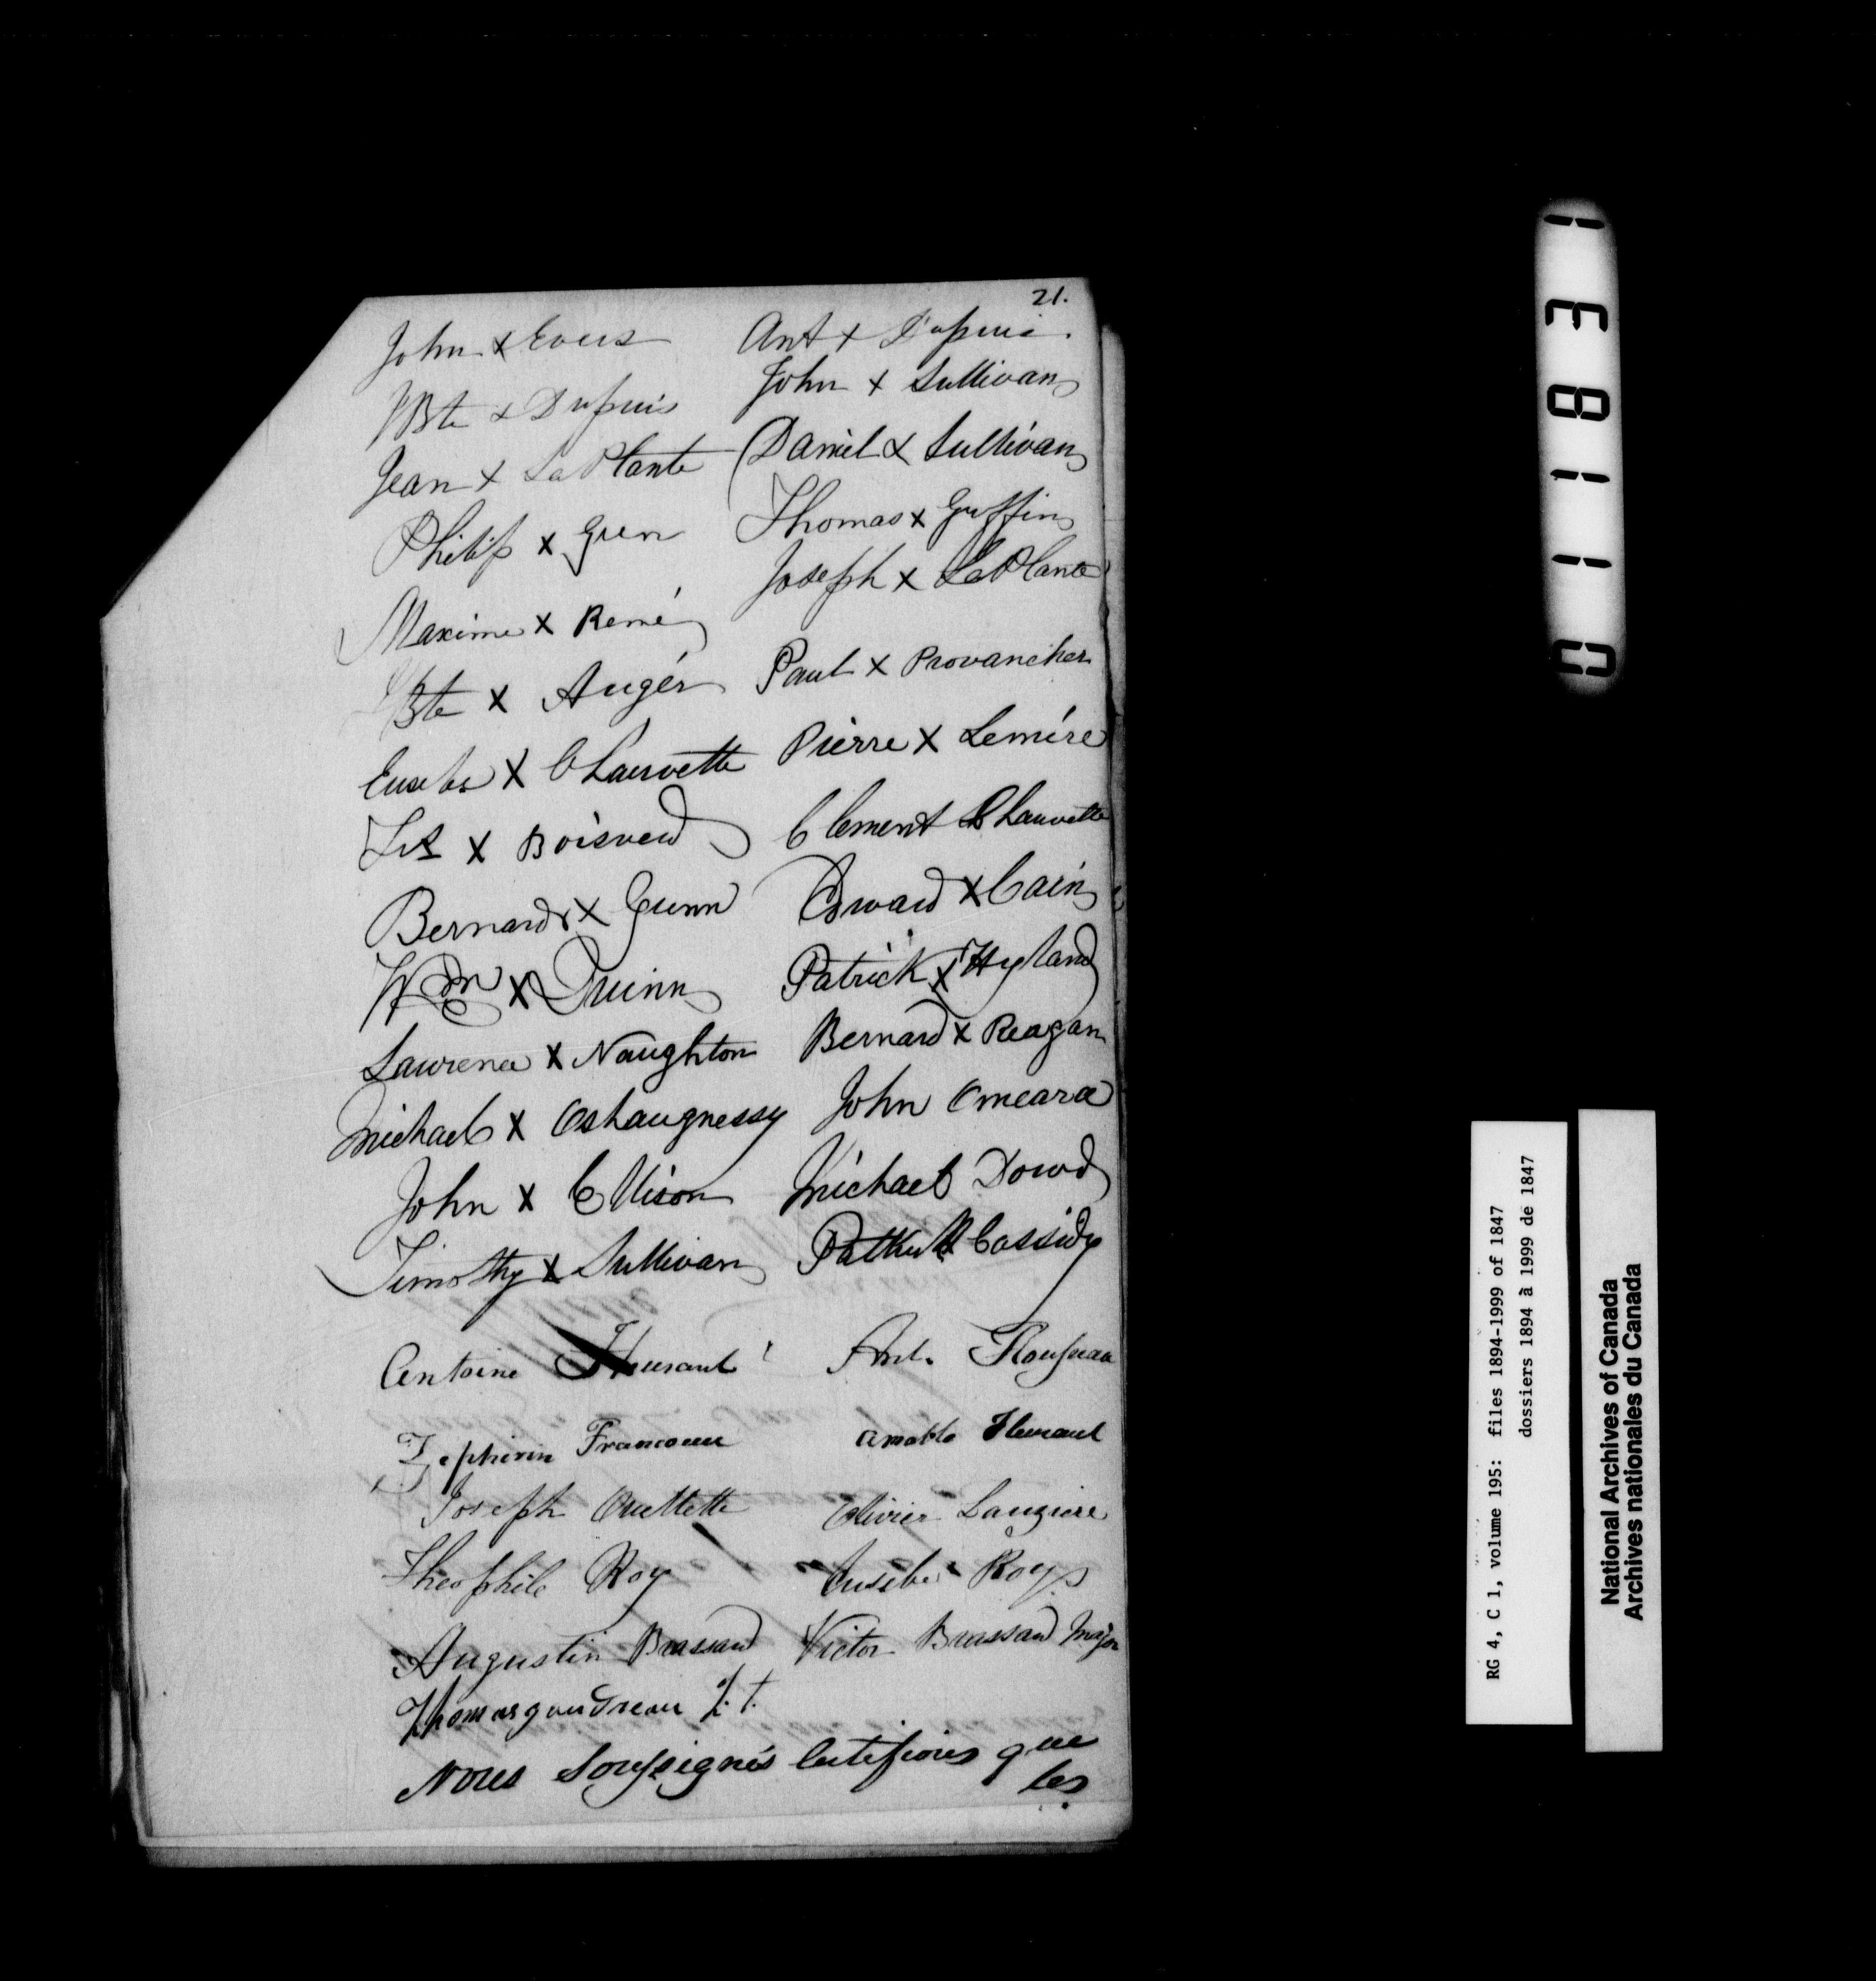 21.
John x Evers Ant x Dupuis.
JBte x Dupuis John x Sullivan
Jean x LaPlante Daniel x Sullivan
Philip x Green Thomas x Griffin
Joseph x LaPlante
Maxime x René
JBte x Augér Paul x Provancher
Eusebe x Chauvette Pierre x Lemére
Ls x Boisverd Clement Chauvette
Bernard x Gunn Edward x Cain
Wm x Quinn Patrick x Hyland
Lawrence x Naughton Bernard x Reagan
Michael x Oshaugnessy John Omeara
John x Ellison Michael Dowd
Timothy x Sullivan Cassidy
Antoine Ant. Rousseau
Zepherin Francoeur Amable
Joseph Ouellette Olivier Lauziere
Theophile Roy Eusebe Roy
Augustin Brassard Victor Brassard Major
Thomas goudreau
Nous Soussignés Certifions que
les
011813 1
RG 4, C 1, volume 195: files 1894-1999 of 1847
dossiers 1894 à 1999 de 1847
National Archives of Canada
Archives nationales du Canada